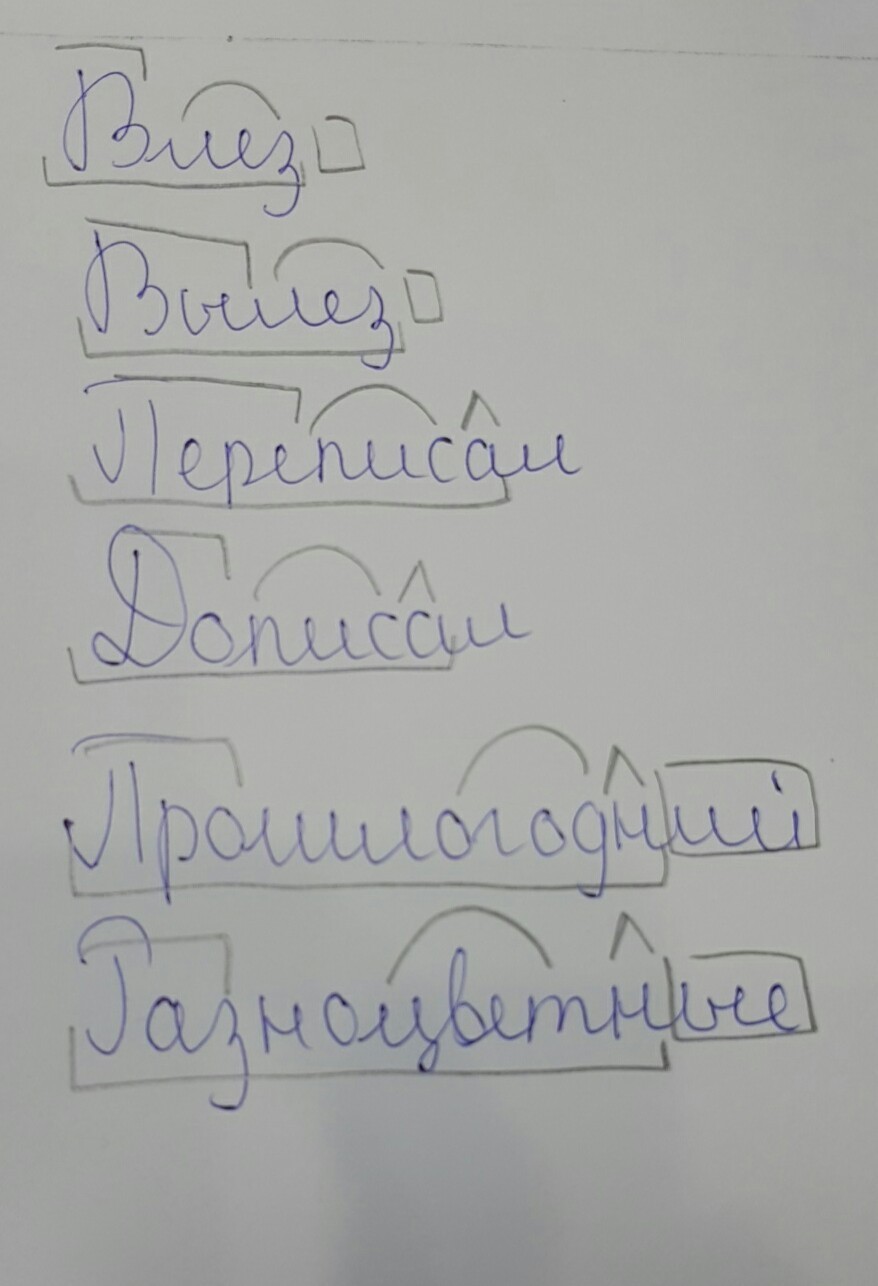 Влез
Вылез
Переписал
Дописал
Прошлогодний
Разноцветные